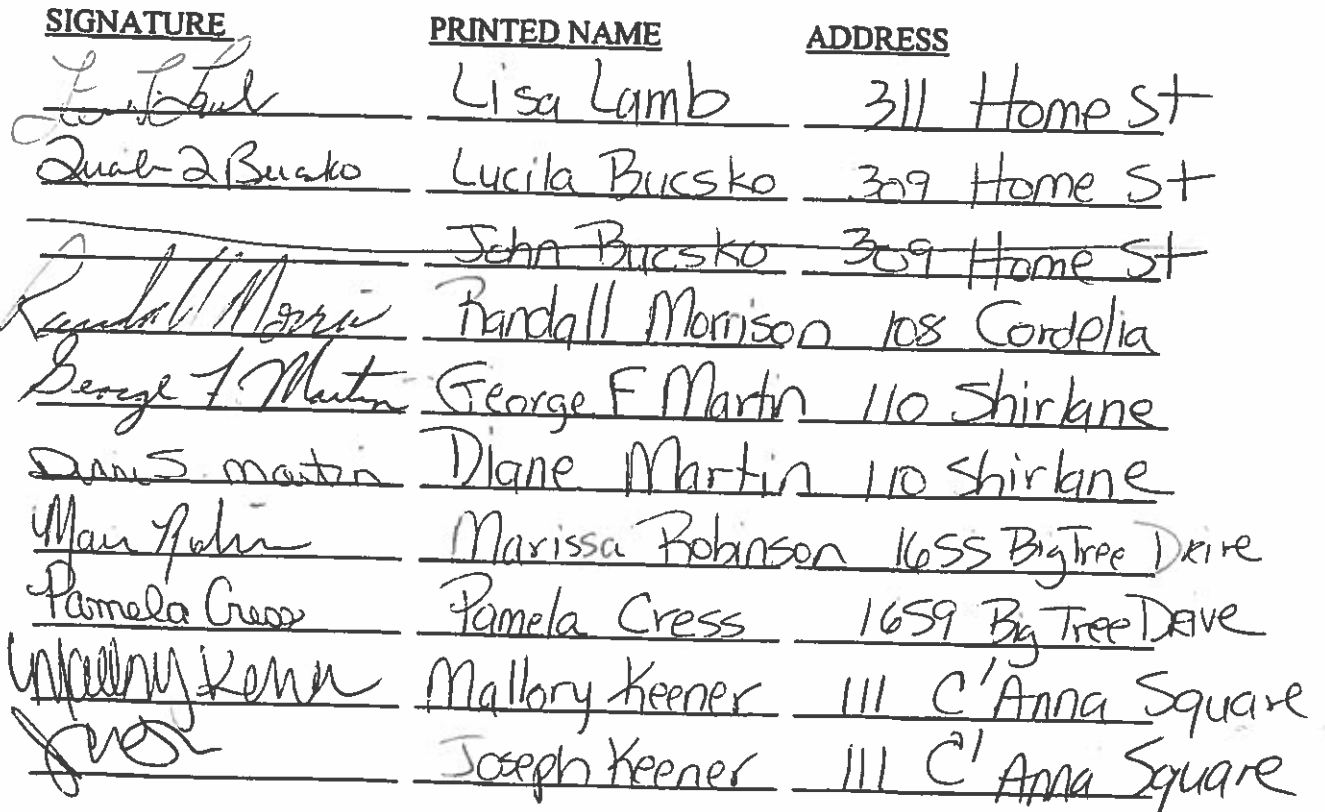 SIGNATURE PRINTED NAME ADDRESS
Lisa Lamb 311 Home St
Bucsko Lucila Bucsko 309 Home St
John Bucsko 309 Home St
Randall Morris Randall Morrison 108 Cordelia
George F Martin George F Martin 110 Shirlane
Martin Diane Martin 110 Shirlane
Marissa Robinson 1655 Big Tree Drive
Pamela Cress Pamela Cress 1659 Big Tree Drive
Mallory Keener Mallory Keener 111 C'Anna Square
Joseph Keener 111 C' Anna Square